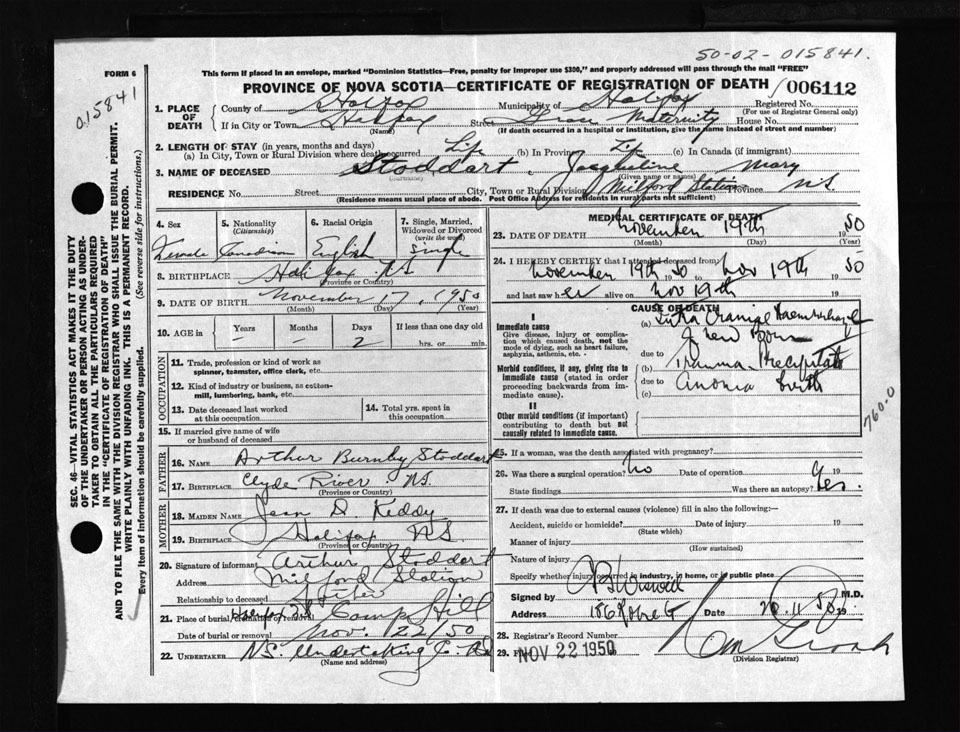 50-02-015841.
FORM 6
015841
This form if placed in an envelope, marked "Dominion Statistics—Free, penalty for improper use $300," and properly addressed will pass through the mail "FREE"
PROVINCE OF NOVA SCOTIA—CERTIFICATE OF REGISTRATION OF DEATH 006112
1. PLACE OF DEATH County of Halifax Municipality of Halifax Registered No.
(For use of Registrar General only)
If in City or Town Halifax Street Grace Maternity House No.
(Name) (If death occurred in a hospital or institution, give the name instead of street and number)
2. LENGTH OF STAY (in years, months and days)
(a) In City, Town or Rural Division where death occurred Life (b) In Province Life (c) In Canada (if immigrant)
3. NAME OF DECEASED Stoddart, Jacqueline Mary
(Surname) (Given name or names)
RESIDENCE No. Street City, Town or Rural Division Milford Station Province N.S.
(Residence means usual place of abode. Post Office Address for residents in rural parts not sufficient)
4. Sex Female
5. Nationality (Citizenship) Canadian
6. Racial Origin English
7. Single, Married, Widowed or Divorced (write the word) Single
8. BIRTHPLACE Halifax N.S.
(Province or Country)
9. DATE OF BIRTH November 17, 1950
(Month) (Day) (Year)
10. AGE in Years – Months – Days 2 If less than one day old hrs. or min.
OCCUPATION
11. Trade, profession or kind of work as spinner, teamster, office clerk, etc.
12. Kind of industry or business, as cotton-mill, lumbering, bank, etc.
13. Date deceased last worked at this occupation
14. Total yrs. spent in this occupation
15. If married give name of wife or husband of deceased
FATHER
16. NAME Arthur Burnby Stoddart
17. BIRTHPLACE Clyde River N.S.
(Province or Country)
MOTHER
18. MAIDEN NAME Jean D. Keddy
19. BIRTHPLACE Halifax N.S.
(Province or Country)
20. Signature of informant Arthur Stoddart
Address Milford Station
Relationship to deceased Father
21. Place of burial, cremation or removal Halifax N.S. Camp Hill
Date of burial or removal Nov. 22/50
22. UNDERTAKER N.S. Undertaking Co. Ltd
(Name and address)
MEDICAL CERTIFICATE OF DEATH
23. DATE OF DEATH November 19th 1950
(Month) (Day) (Year)
24. I HEREBY CERTIFY that I attended deceased from
November 19th 50 to Nov 19th 50
and last saw her alive on Nov 19th 19
CAUSE OF DEATH
I
Immediate cause
Give disease, injury or complication which caused death, not the mode of dying, such as heart failure, asphyxia, asthenia, etc.
(a) Intra Cranial Haemorrhage of New Born
due to
Morbid conditions, if any, giving rise to immediate cause (stated in order proceeding backwards from immediate cause).
(b) Trauma Precipitate
due to Anoxia Birth
(c)
II
Other morbid conditions (if important) contributing to death but not causally related to immediate cause.
760.0
25. If a woman, was the death associated with pregnancy?
26. Was there a surgical operation? No Date of operation 19
State findings Was there an autopsy? Yes.
27. If death was due to external causes (violence) fill in also the following:—
Accident, suicide or homicide? Date of injury 19
(State which)
Manner of injury
(How sustained)
Nature of injury
Specify whether injury occurred in industry, in home, or in public place
Signed by M.D.
Address Date 20.11.50 19
28. Registrar's Record Number
29. Filed NOV 22 1950
(Division Registrar)
SEC. 46—VITAL STATISTICS ACT MAKES IT THE DUTY
OF THE UNDERTAKER OR PERSON ACTING AS UNDER-
TAKER TO OBTAIN ALL THE PARTICULARS REQUIRED
IN THE "CERTIFICATE OF REGISTRATION OF DEATH"
AND TO FILE THE SAME WITH THE DIVISION REGISTRAR WHO SHALL ISSUE THE BURIAL PERMIT.
WRITE PLAINLY WITH UNFADING INK. THIS IS A PERMANENT RECORD.
Every item of information should be carefully supplied. (See reverse side for instructions.)